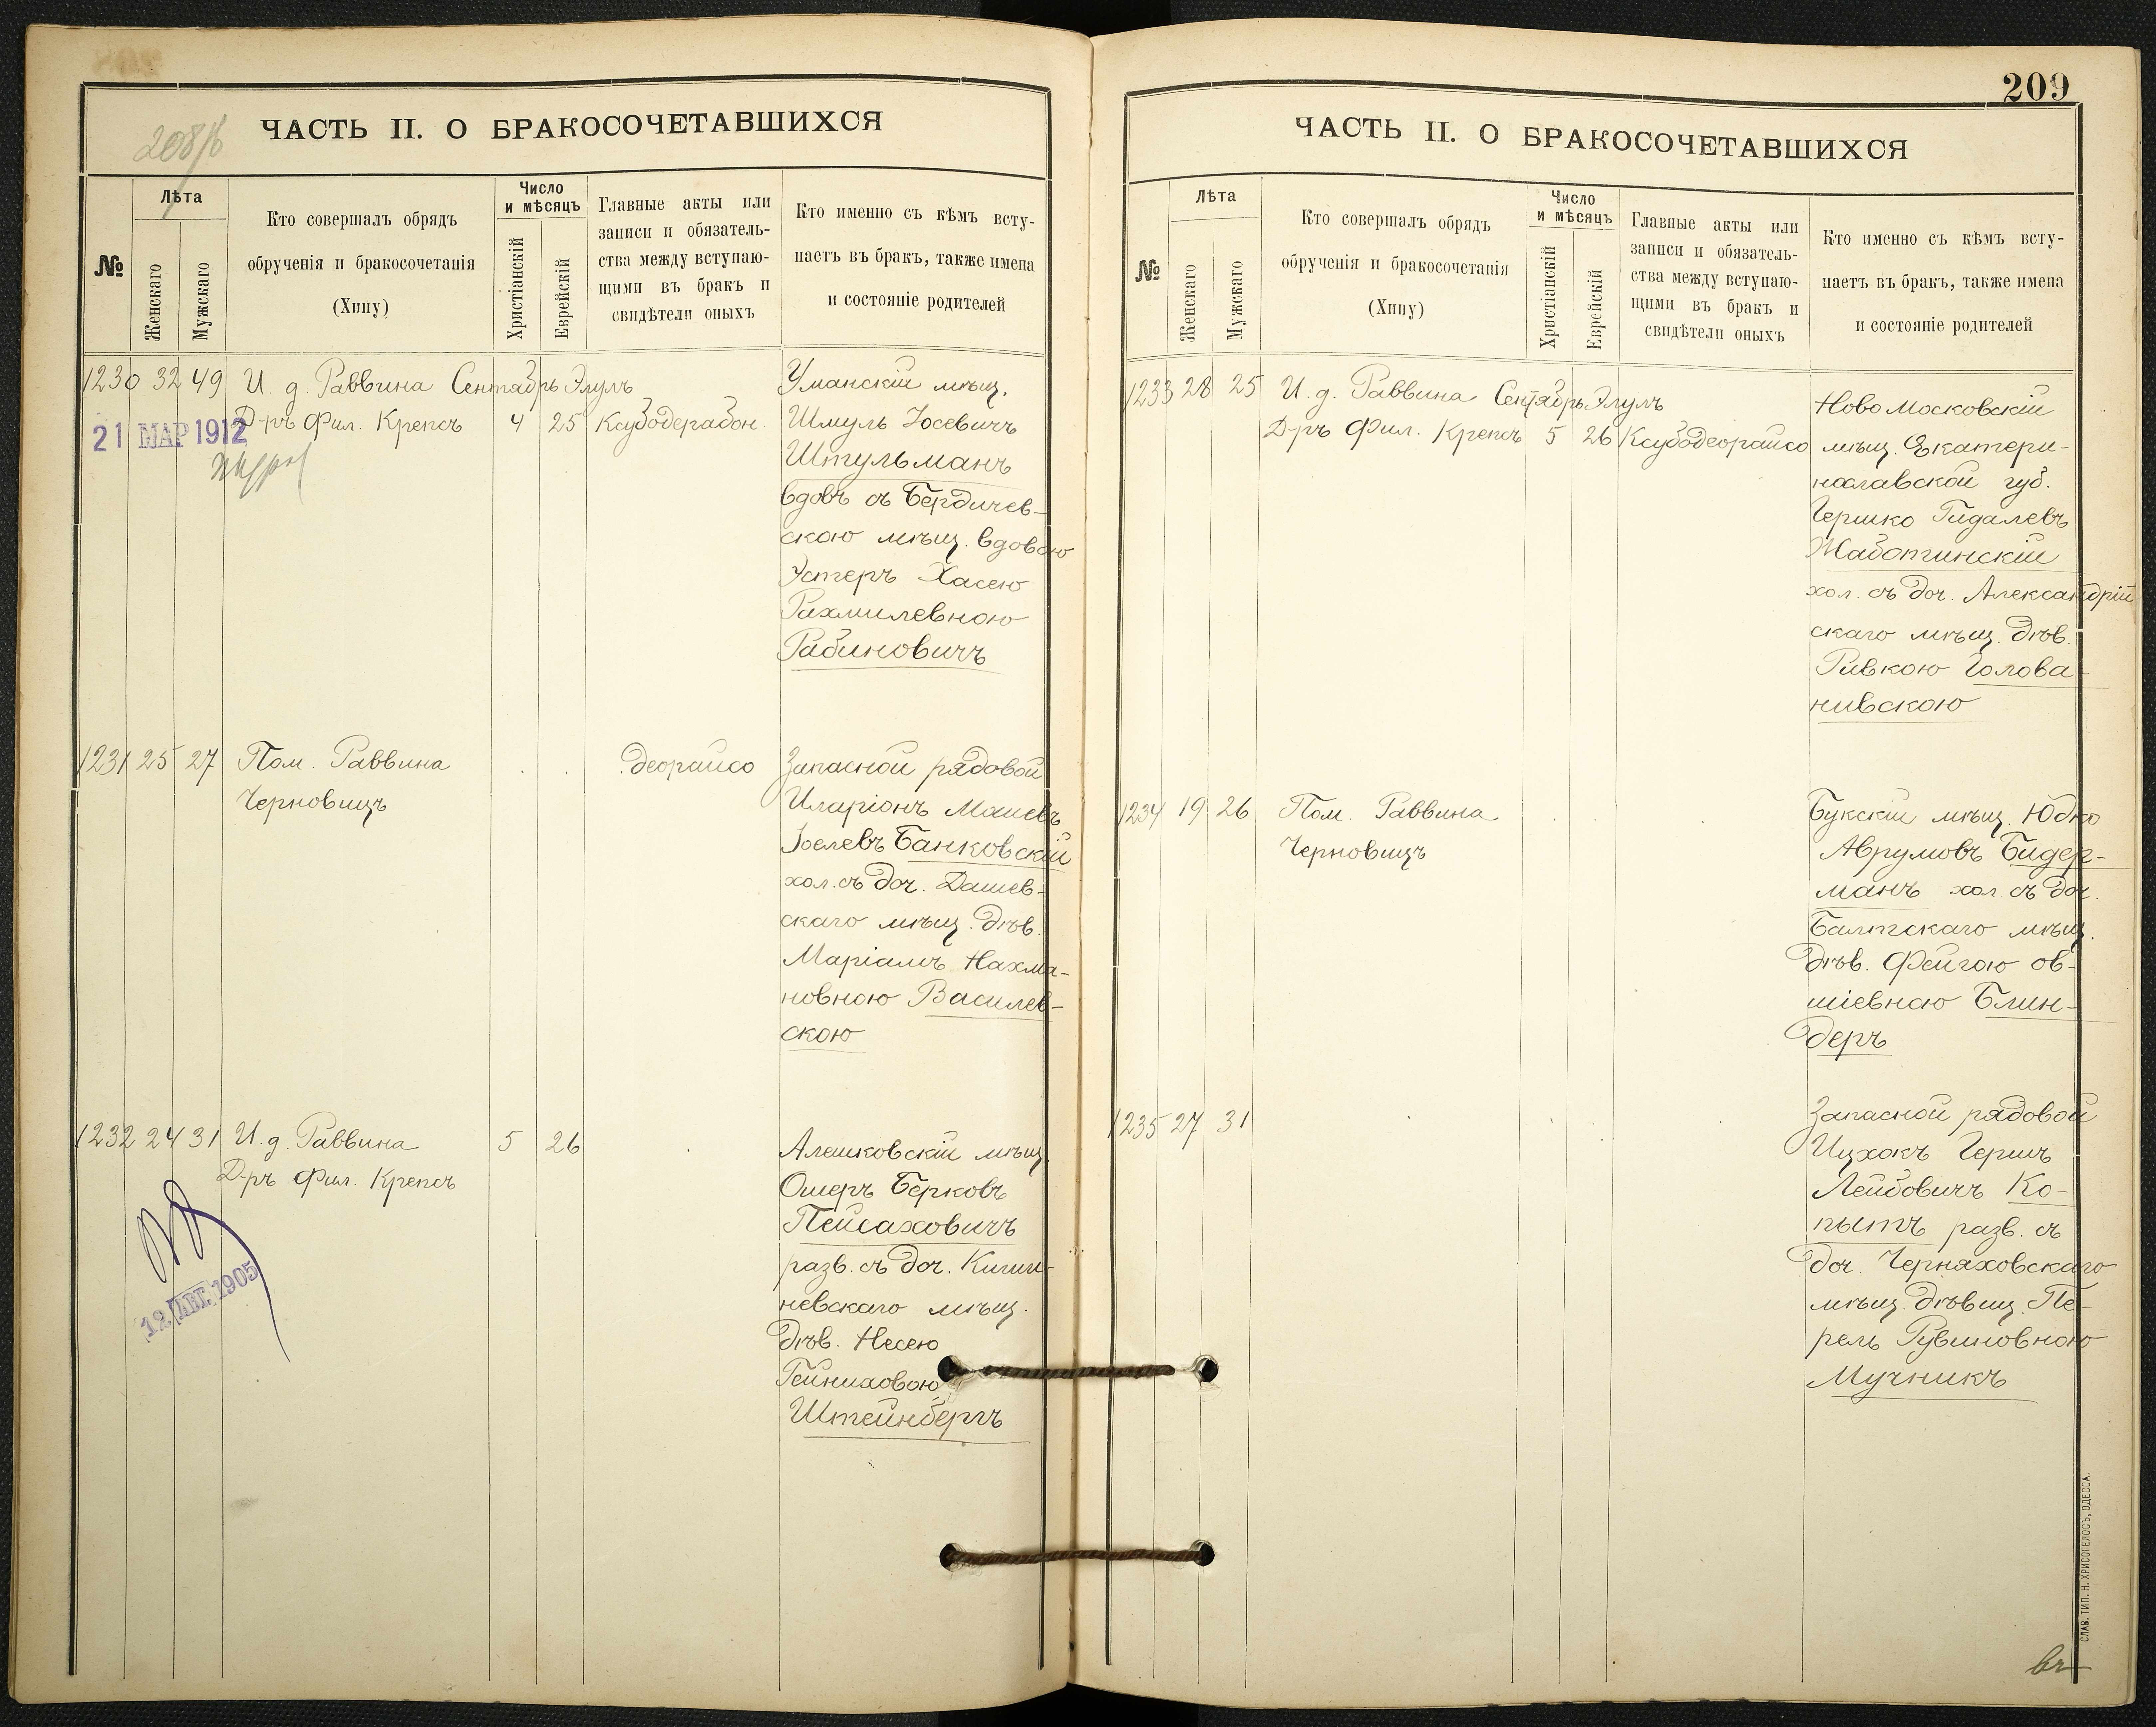 208/б
ЧАСТЬ II. О БРАКОСОЧЕТАВШИХСЯ
№
Лѣта
Женскаго
Мужскаго
Кто совершалъ обрядъ
обрученія и бракосочетанія
(Хипу)
Число
и мѣсяцъ
Христіанскій
Еврейскій
Главные акты или
записи и обязатель-
ства между вступаю-
щими въ бракъ и
свидѣтели оныхъ
Кто именно съ кѣмъ всту-
паетъ въ бракъ, также имена
и состояніе родителей
1230 32 49 И. д. Раввина Сентябрь Элулъ
Д-ръ Фил. Крепсъ 4 25 Ксубодерабон
21 МАР 1912
Уманскій мѣщ.
Шмуль Іосевичъ
Штульманъ
вдовъ съ Бердичев-
скою мѣщ. вдовою
Эстеръ Хасею
Рахмилевною
Рабиновичъ
1231 25 27 Пом. Раввина . . . деорайсо
Черновицъ
Запасной рядовой
Иларіонъ Мошевъ
Іоелевъ Банковскій
хол. съ доч. Дашев-
скаго мѣщ. дѣв.
Маріамъ Нахма-
новною Василев-
скою
1232 24 31 И. д. Раввина 5 26 .
Д-ръ Фил. Крепсъ
12 АВГ. 1905
Алешковскій мѣщ.
Ошеръ Берковъ
Пейсаховичъ
разв. съ доч. Киши-
невскаго мѣщ.
дѣв. Несею
Гейниховою
Штейнбергъ
209
ЧАСТЬ II. О БРАКОСОЧЕТАВШИХСЯ
№
Лѣта
Женскаго
Мужскаго
Кто совершалъ обрядъ
обрученія и бракосочетанія
(Хипу)
Число
и мѣсяцъ
Христіанскій
Еврейскій
Главные акты или
записи и обязатель-
ства между вступаю-
щими въ бракъ и
свидѣтели оныхъ
Кто именно съ кѣмъ всту-
паетъ въ бракъ, также имена
и состояніе родителей
1233 28 25 И. д. Раввина Сентябрь Элулъ
Д-ръ Фил. Крепсъ 5 26 Ксубодеорайсо
Ново Московскій
мѣщ. Екатери-
нославской губ.
Гершко Гидалевъ
Жаботинскій
хол. съ доч. Александрій
скаго мѣщ. дѣв.
Ривкою Голова-
нивскою
1234 19 26 Пом. Раввина . . .
Черновицъ
Букскій мѣщ. Юдко
Аврумовъ Бидер-
манъ хол. съ доч.
Балтскаго мѣщ.
дѣв. Фейгою Ов-
шіевною Блин-
деръ
1235 27 31 . . . .
Запасной рядовой
Ицхокъ Гершъ
Лейбовичъ Ко-
пытъ разв. съ
доч. Черняховскаго
мѣщ. дѣвиц. Пе-
рель Рувиновною
Мучникъ
СЛАВ. ТИП. Н. ХРИСОГЕЛОСЪ, ОДЕССА.